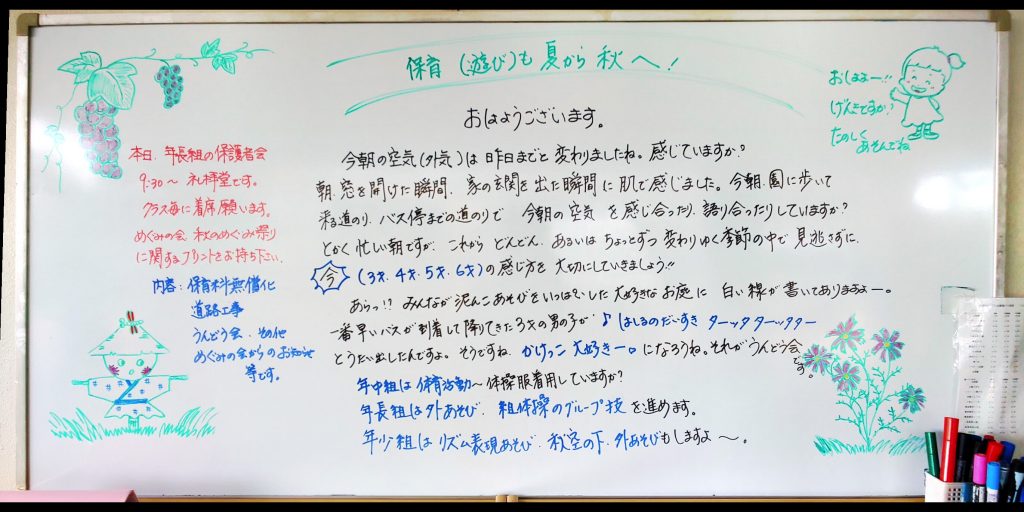 保育(遊び)も夏から秋へ!
おはよー!!
げんきですか?
たのしく
あそんでね
おはようございます。
本日、年長組の保護者会
9:30〜 礼拝堂です。
クラス毎に着席願います。
めぐみの会 秋のめぐみ祭り
に関するプリントをお持ち下さい。
内容:保育料無償化
道路工事
うんどう会、その他
めぐみの会からのお知らせ
等です。
今朝の空気(外気)は昨日までと変わりましたね。感じていますか?
朝、窓を開けた瞬間、家の玄関を出た瞬間に肌で感じました。今朝、園に歩いて
来る道のり、バス停までの道のりで 今朝の空気を感じ合ったり、語り合ったりしていますか?
とかく忙しい朝ですが、これから どんどん、あるいは ちょっとずつ変わりゆく季節の中で見逃さずに、
今(3才、4才、5才、6才)の感じ方を大切にしていきましょう!!
あらっ!? みんなが泥んこあそびをいっぱいした大好きなお庭に 白い線が書いてありますよー。
一番早いバスが到着して降りてきた3才の男の子が、♪はしるのだいすき タータタ タータタター
とうたい出したんですよ。そうですね、かけっこ大好きー。になろうね。それがうんどう会
です。
年中組は保育活動〜体操服着用していますか?
年長組は外あそび、組体操のグループ技を進めます。
年少組はリズム表現あそび、秋空の下、外あそびもしますよ〜。